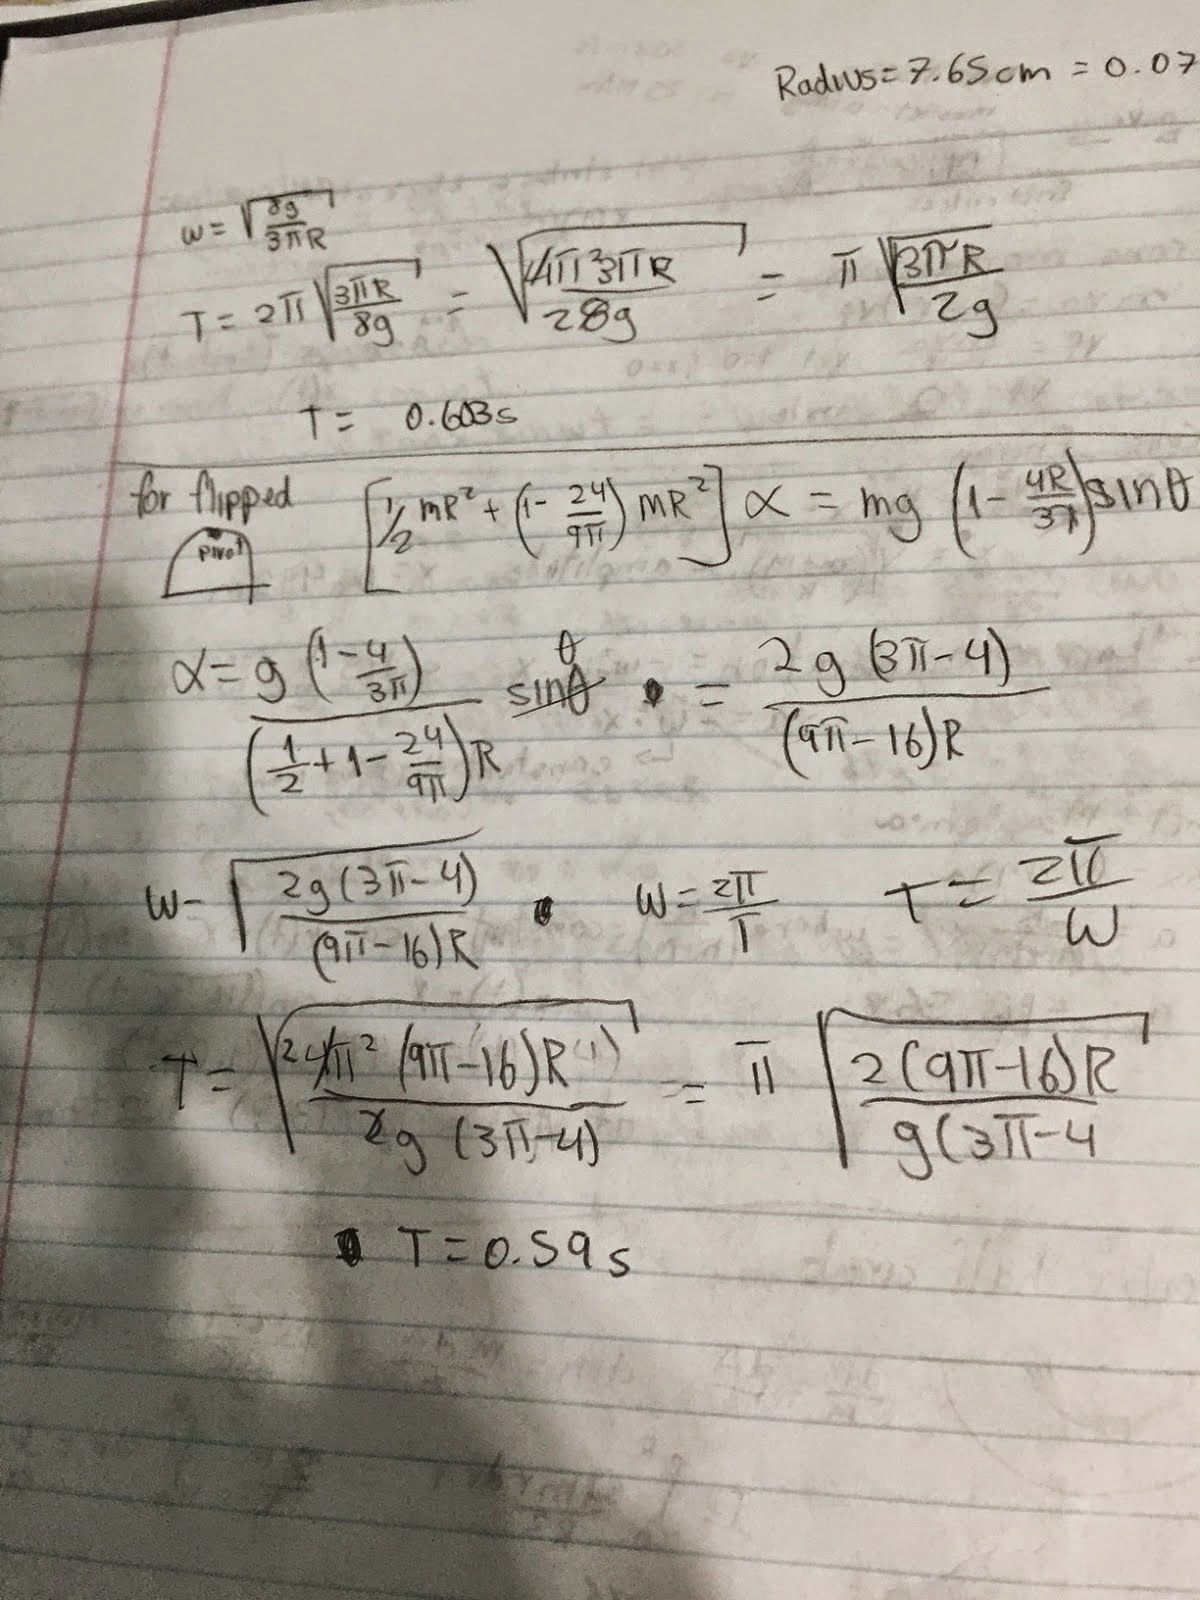 Radius = 7.65cm = 0.07
w = √(8g/3πR)
T = 2π √(3πR/8g) = √(4π²3πR/28g) = π √(3πR/2g)
T = 0.603s
for flipped
pivot
[1/2 mR² + (1 - 24/9π) mR²] α = mg (1 - 4R/3π) sinθ
α = g (1 - 4/3π) / (1/2 + 1 - 24/9π)R sinθ θ = 2g (3π-4) / (9π-16)R
w - √(2g(3π-4)/(9π-16)R) w = 2π/T T = 2π/w
T = √(2 4π² (9π-16)R(1) / 2g (3π-4)) = π √(2(9π-16)R / g(3π-4)
T = 0.59s